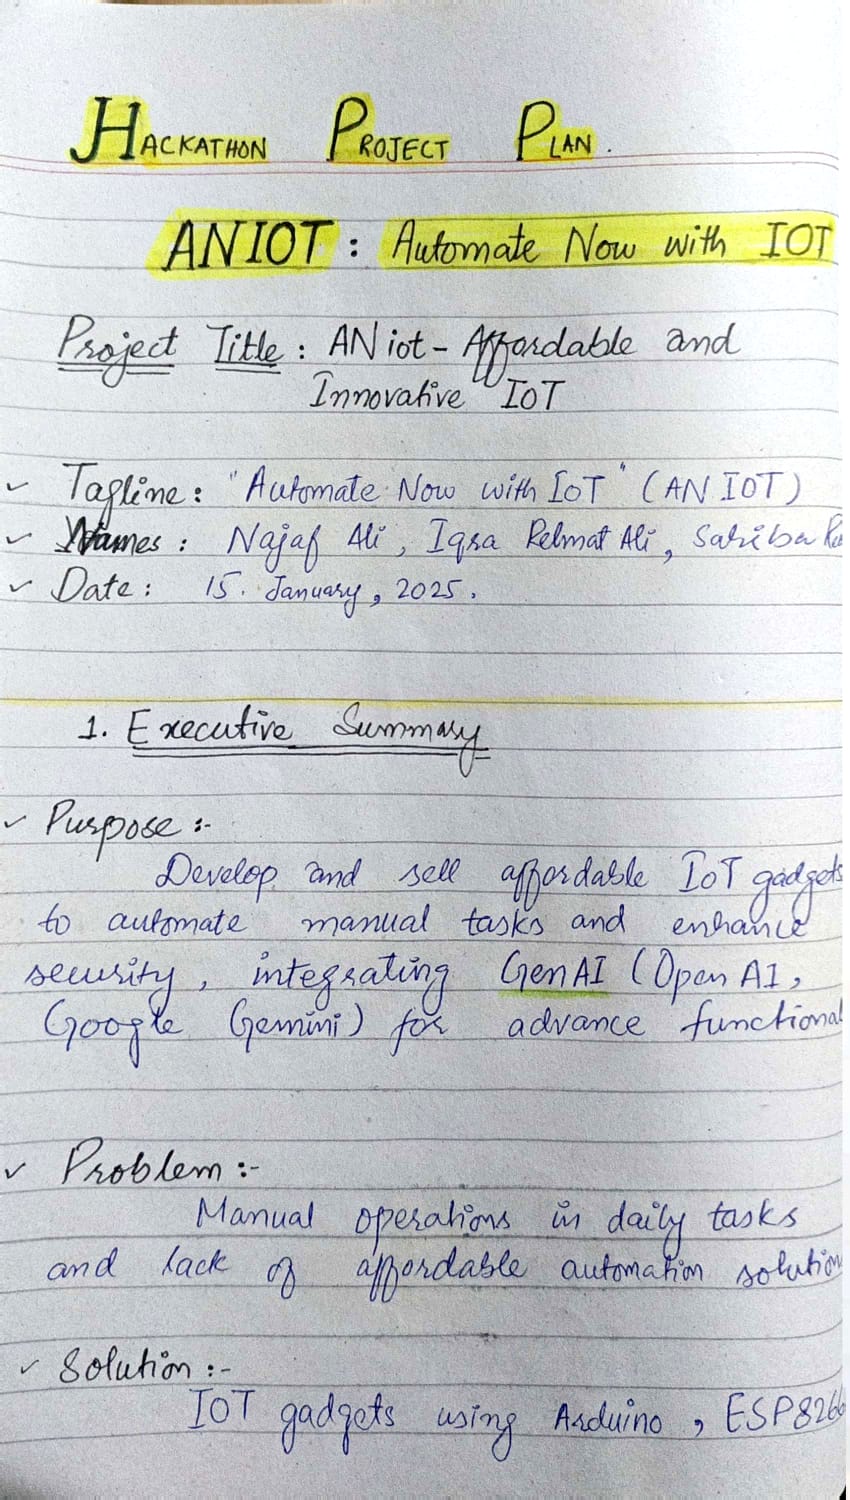 HACKATHON PROJECT PLAN.
ANIOT : Automate Now with IOT
Project Title : ANiot - Affordable and
Innovative IoT
✓ Tagline : "Automate Now with IoT" (ANIOT)
✓ Names : Najaf Ali, Iqra Rehmat Ali,
✓ Date : 15. January, 2025.
1. Executive Summary
✓ Purpose :-
Develop and sell affordable IoT gadgets
to automate manual tasks and enhance
security, integrating GenAI (Open AI,
Google Gemini) for advance functional
✓ Problem :-
Manual operations in daily tasks
and lack of affordable automation solution
✓ Solution :-
IOT gadgets using Arduino, ESP8266